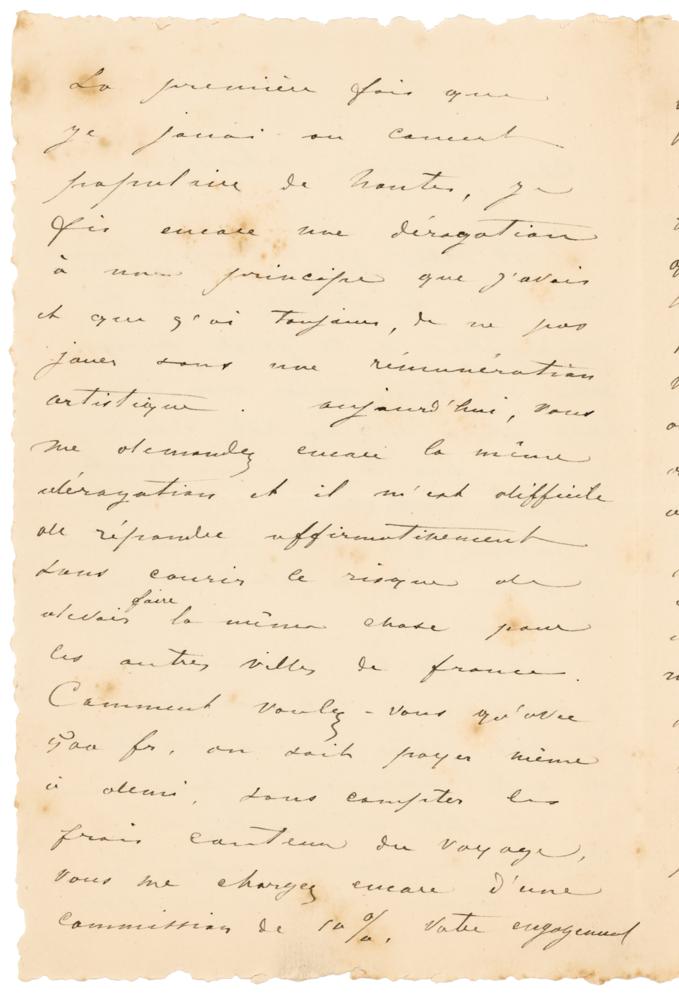 La première fois que
je jouai au concert
populaire de Nantes, je
fis encore une dérogation
à mon principe que j'avais
et que j'ai toujours, de ne pas
jouer sans une rémunération
artistique. aujourd'hui, vous
me demandez encore la même
dérogation et il m'est difficile
de répondre affirmativement
sans courir le risque de
devoir faire la même chose pour
les autres villes de france.
Comment voulez-vous qu'avec
500 fr. on soit payer même
à demi, sans compter les
frais du voyage,
vous me chargez encore d'une
commission de 10%. Votre engagement